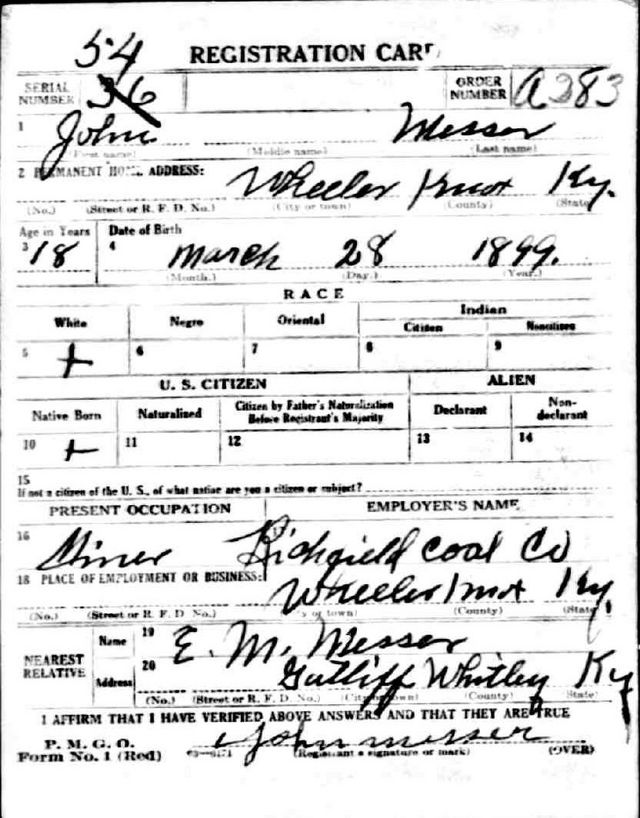 54
REGISTRATION CARD
SERIAL NUMBER 36
ORDER NUMBER A 383
1 John Messer
(First name) (Middle name) (Last name)
2 PERMANENT HOME ADDRESS: Wheeler Knox Ky.
(No.) (Street or R. F. D. No.) (City or town) (County) (State)
Age in Years Date of Birth
3 18 4 March 28 1899.
(Month.) (Day.) (Year.)
RACE
White Negro Oriental Indian
Citizen Noncitizen
5 + 6 7 8 9
U. S. CITIZEN ALIEN
Native Born Naturalized Citizen by Father's Naturalization Before Registrant's Majority Declarant Non-declarant
10 + 11 12 13 14
15
If not a citizen of the U. S., of what nation are you a citizen or subject?
PRESENT OCCUPATION EMPLOYER'S NAME
16 Miner Richfield Coal Co
18 PLACE OF EMPLOYMENT OR BUSINESS: Wheeler Knox Ky.
(No.) (Street or R. F. D. No.) (City or town) (County) (State)
NEAREST RELATIVE
Name 19 E. M. Messer
Address 20 Gatliff Whitley Ky
(No.) (Street or R. F. D. No.) (City or town) (County) (State)
I AFFIRM THAT I HAVE VERIFIED ABOVE ANSWERS AND THAT THEY ARE TRUE
P. M. G. O.
Form No. 1 (Red) 03—6171 John Messer
(Registrant's signature or mark) (OVER)